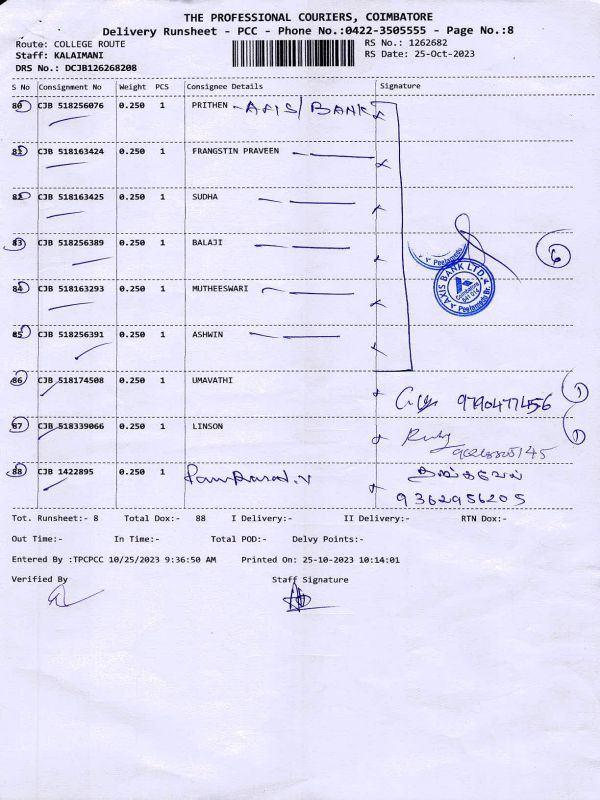 THE PROFESSIONAL COURIERS, COIMBATORE
Delivery Runsheet - PCC - Phone No.:0422-3505555 - Page No.:8
Route: COLLEGE ROUTE
RS No.: 1262682
Staff: KALAIMANI
RS Date: 25-Oct-2023
DRS No.: DCJB126268208
S No Consignment No Weight PCS Consignee Details Signature
80 CJB 518256076 0.250 1 PRITHEN - AXIS BANK
81 CJB 518163424 0.250 1 FRANGSTIN PRAVEEN
82 CJB 518163425 0.250 1 SUDHA
83 CJB 518256389 0.250 1 BALAJI
84 CJB 518163293 0.250 1 MUTHEESWARI
85 CJB 518256391 0.250 1 ASHWIN
Peelamedu
AXIS BANK LTD.
Peelamedu Br.
6
86 CJB 518174508 0.250 1 UMAVATHI
9790477456 1
87 CJB 518339066 0.250 1 LINSON
1
88 CJB 1422895 0.250 1 Ramprasad.V
9362956205
Tot. Runsheet:- 8 Total Dox:- 88 I Delivery:- II Delivery:- RTN Dox:-
Out Time:- In Time:- Total POD:- Delvy Points:-
Entered By :TPCPCC 10/25/2023 9:36:50 AM Printed On: 25-10-2023 10:14:01
Verified By Staff Signature